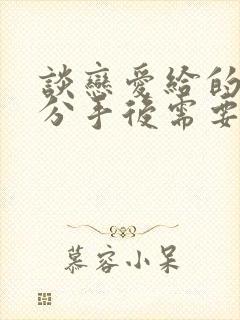 談戀愛給的
分手後需要
慕容小呆